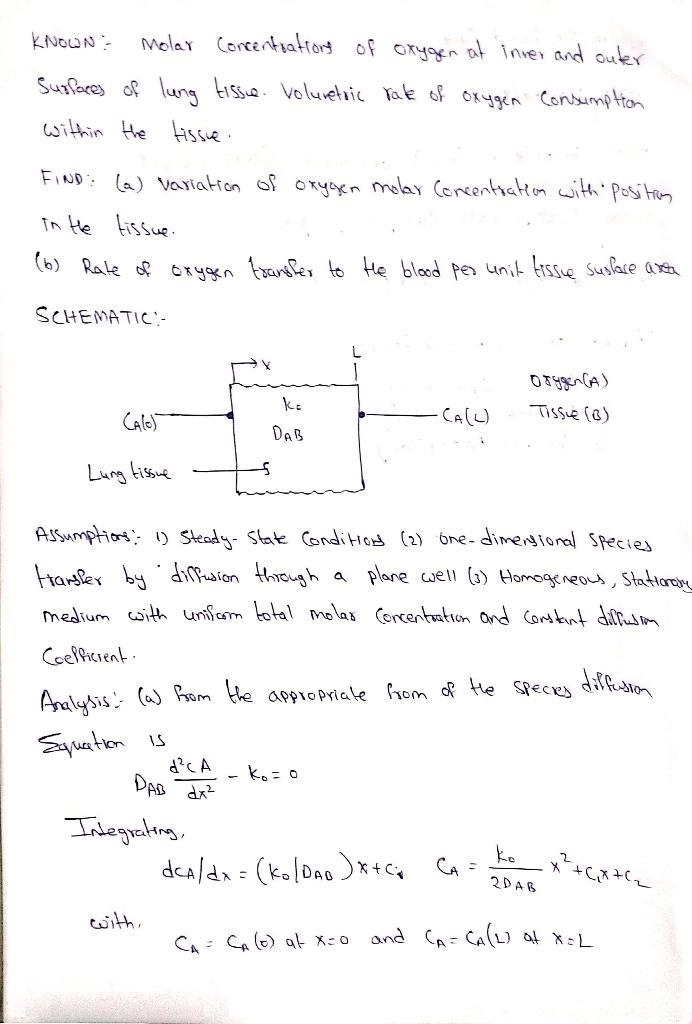 KNOWN:- Molar Concentrations of oxygen at inner and outer
Surfaces of lung tissue. Volumetric rate of oxygen Consumption
within the tissue.
FIND:- (a) variation of oxygen molar Concentration with position
in the tissue.
(b) Rate of oxygen transfer to the blood per unit tissue surface area
SCHEMATIC:-
x L
Oxygen(A)
k₀
CA(0) CA(L) Tissue (B)
DAB
Lung tissue
Assumptions:- 1) Steady-State Conditions (2) one-dimensional species
transfer by diffusion through a plane well (3) Homogeneous, Stationary
medium with uniform total molar concentration and constant diffusion
Coefficient.
Analysis:- (a) From the appropriate from of the species diffusion
Equation is
DAB d²CA/dx² - k₀ = 0
Integrating,
dCA/dx = (k₀/DAB)x + C₁ CA = k₀/2DAB x² + C₁x + C₂
with,
CA = CA(0) at x=0 and CA = CA(L) at x=L